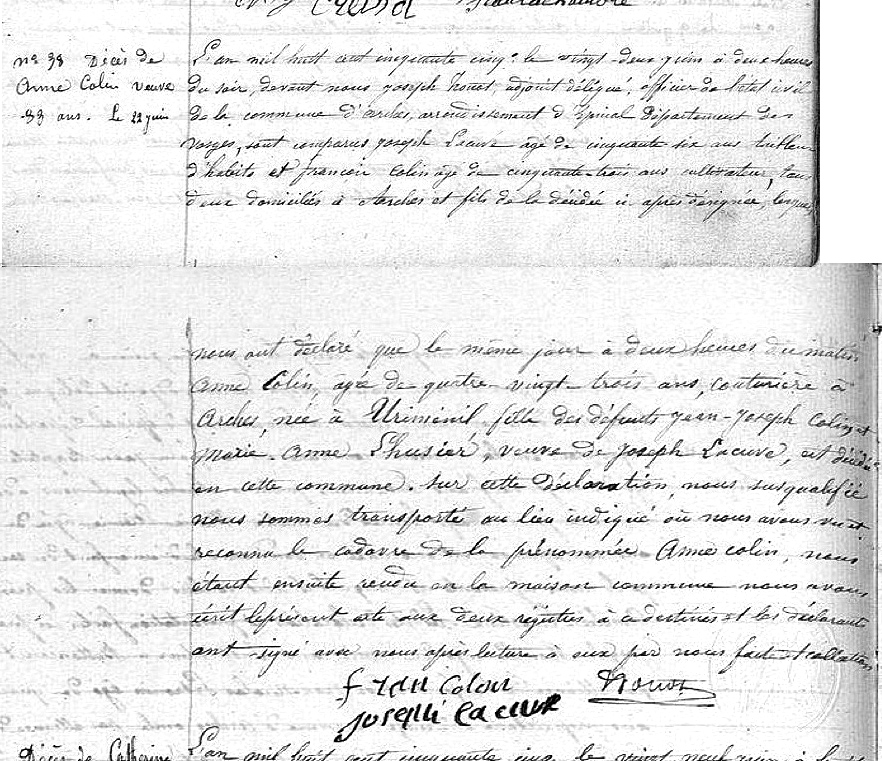 nº 38 Décès de
Anne Colin veuve
83 ans. Le 22 juin
L'an mil huit cent cinquante cinq, le vingt-deux juin à deux heures
du soir, devant nous Joseph houot, adjoint délégué, officier de l'état civil
de la commune d'arches, arrondissement d'Epinal département des
vosges, sont comparus joseph Lacuve âgé de cinquante six ans tailleur
d'habits et françois Colin âgé de cinquante-trois ans cultivateur, tous
deux domiciliés à Arches et fils de la décédée ci après désignée, lesquels
nous ont déclaré que le même jour à deux heures du matin
Anne Colin, âgée de quatre-vingt-trois ans, couturière à
Arches, née à Uriménil fille des défunts Jean-Joseph Colin et
Marie-Anne Lhusieré, veuve de Joseph Lacuve, est décédée
en cette commune. Sur cette déclaration, nous susqualifié
nous sommes transporté au lieu indiqué où nous avons vu et
reconnu le cadavre de la prénommée Anne colin, nous
étant ensuite rendu en la maison commune nous avons
écrit le présent acte aux deux registres à ce destinés et les déclarants
ont signé avec nous après lecture à eux par nous fait et collation
Colin houot
joseph Lacuve
Décès de Catherine
L'an mil huit cent cinquante cinq le vingt neuf juin à